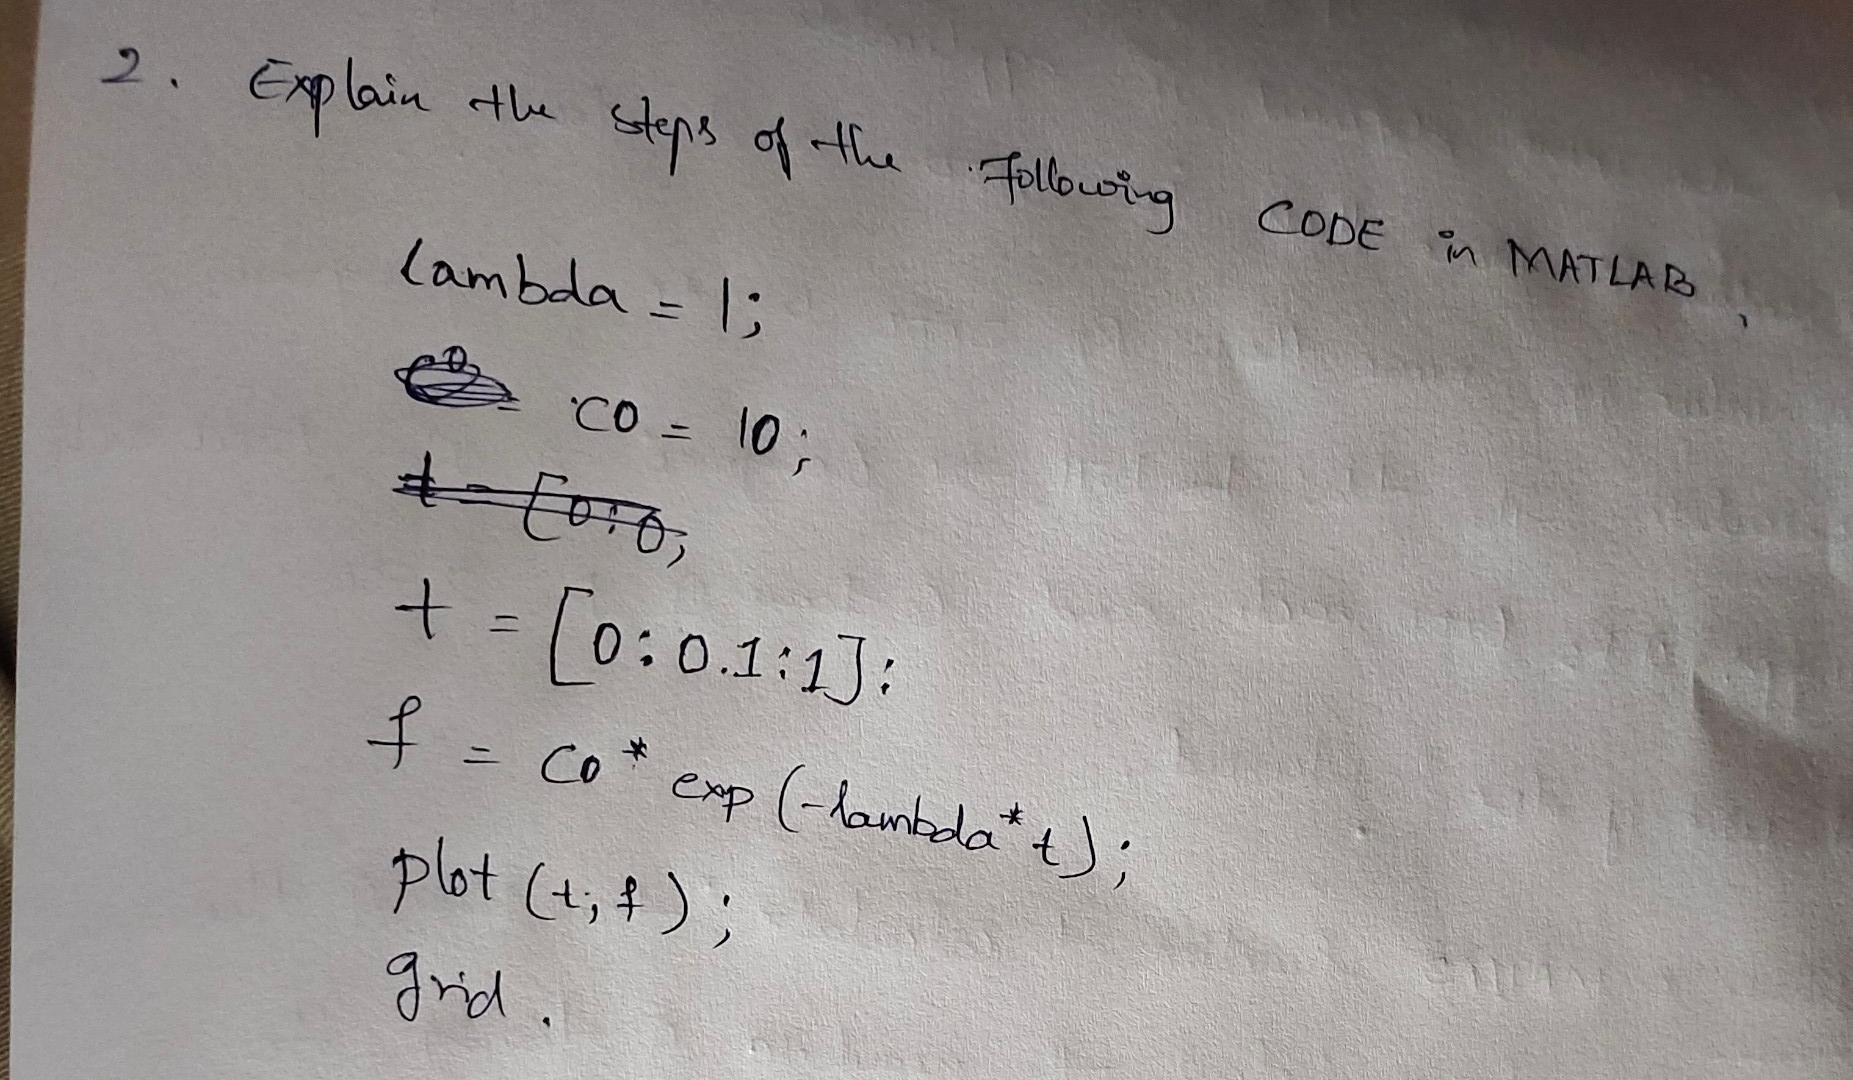 2. Explain the steps of the Following CODE in MATLAB,
lambda = 1;
CO = 10;
t = [0:0;
t = [0:0.1:1]:
f = Co * exp (-lambda * t);
plot (t; f);
grid.